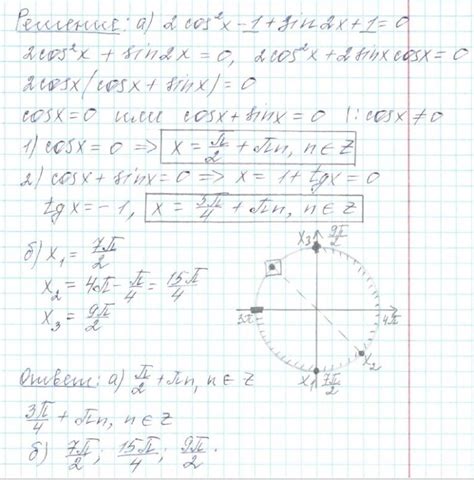 Решение: а) 2cos²x - 1 + sin2x + 1 = 0
2cos²x + sin2x = 0, 2cos²x + 2sinx cosx = 0
2cosx(cosx + sinx) = 0
cosx = 0 или cosx + sinx = 0 |: cosx ≠ 0
1) cosx = 0 => x = π/2 + πn, n ∈ Z
2) cosx + sinx = 0 => x = 1 + tgx = 0
tgx = -1, x = 3π/4 + πn, n ∈ Z
б) x₁ = 7π/2
x₂ = 4π - π/4 = 15π/4
x₃ = 9π/2
x₃ 9π/2
3π
4π
x₂
x₁ 7π/2
Ответ: а) π/2 + πn, n ∈ Z
3π/4 + πn, n ∈ Z
б) 7π/2; 15π/4; 9π/2.